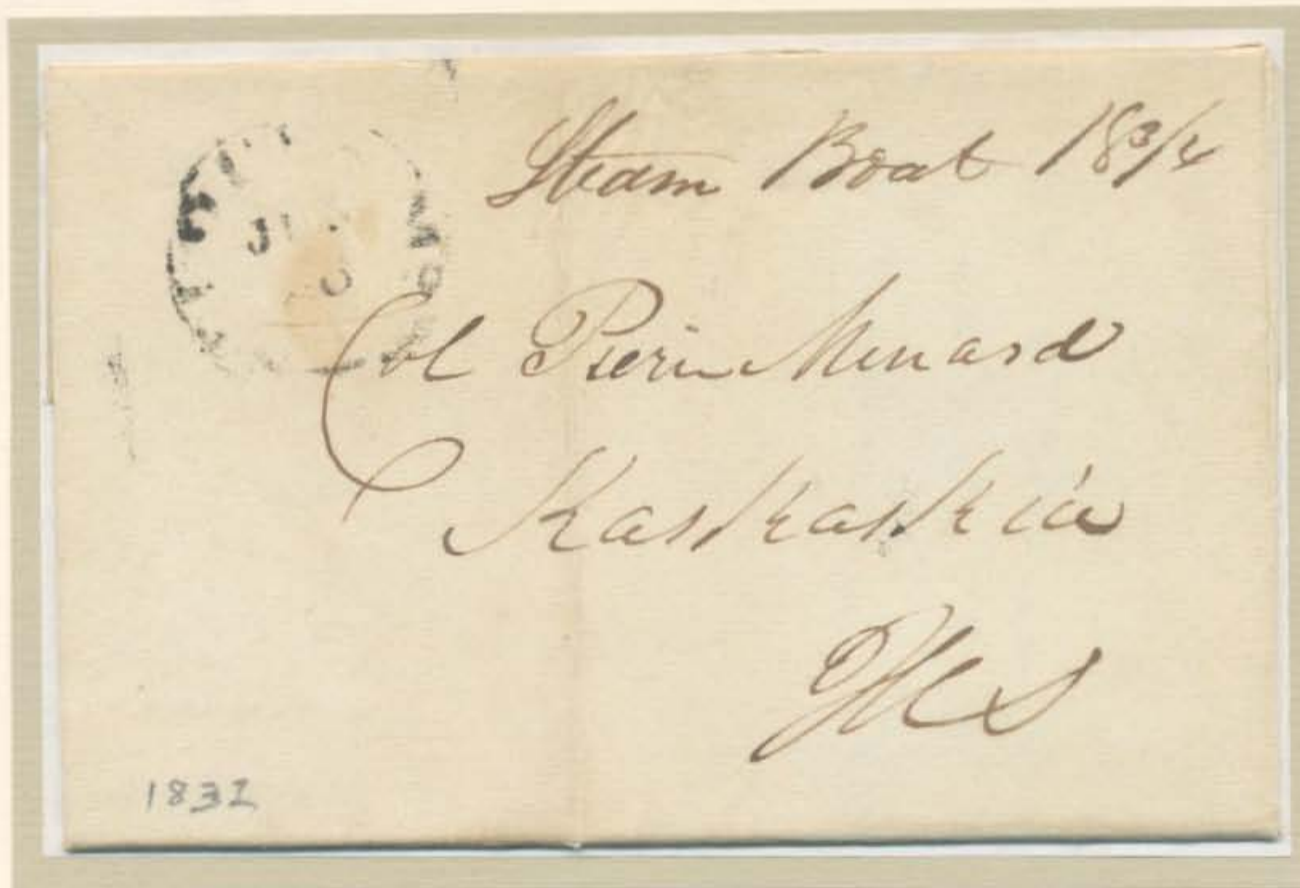 Steam Boat 18 3/4
JU
Col Pierre Menard
Kaskaskia
Ills
1832